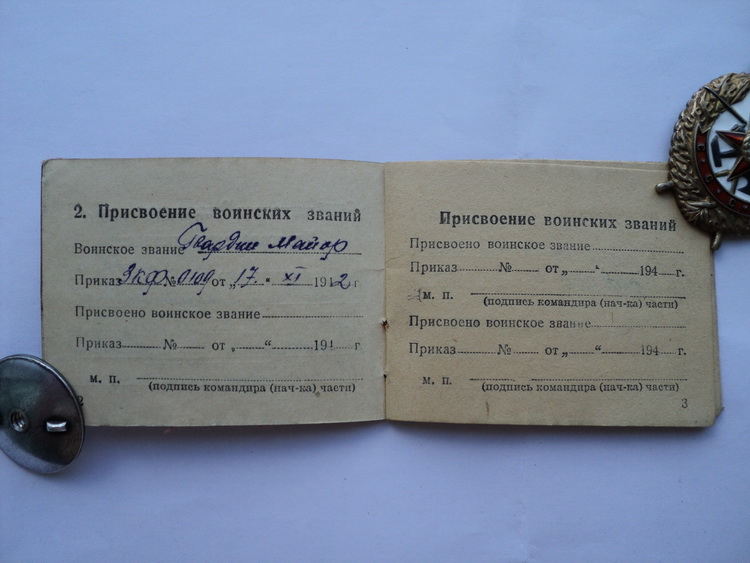 2. Присвоение воинских званий
Воинское звание Гвардии Майор
Приказ ЗКФ № 0109 от „17.“ XI 1942 г
Присвоено воинское звание
Приказ № от „ “ 194 г
м. п.
(подпись командира (нач-ка) части)
2
Присвоение воинских званий
Присвоено воинское звание
Приказ № от „ “ 194 г.
м. п.
(подпись командира (нач-ка) части)
Присвоено воинское звание
Приказ № от „ “ 194 г.
м. п.
(подпись командира (нач-ка) части)
3